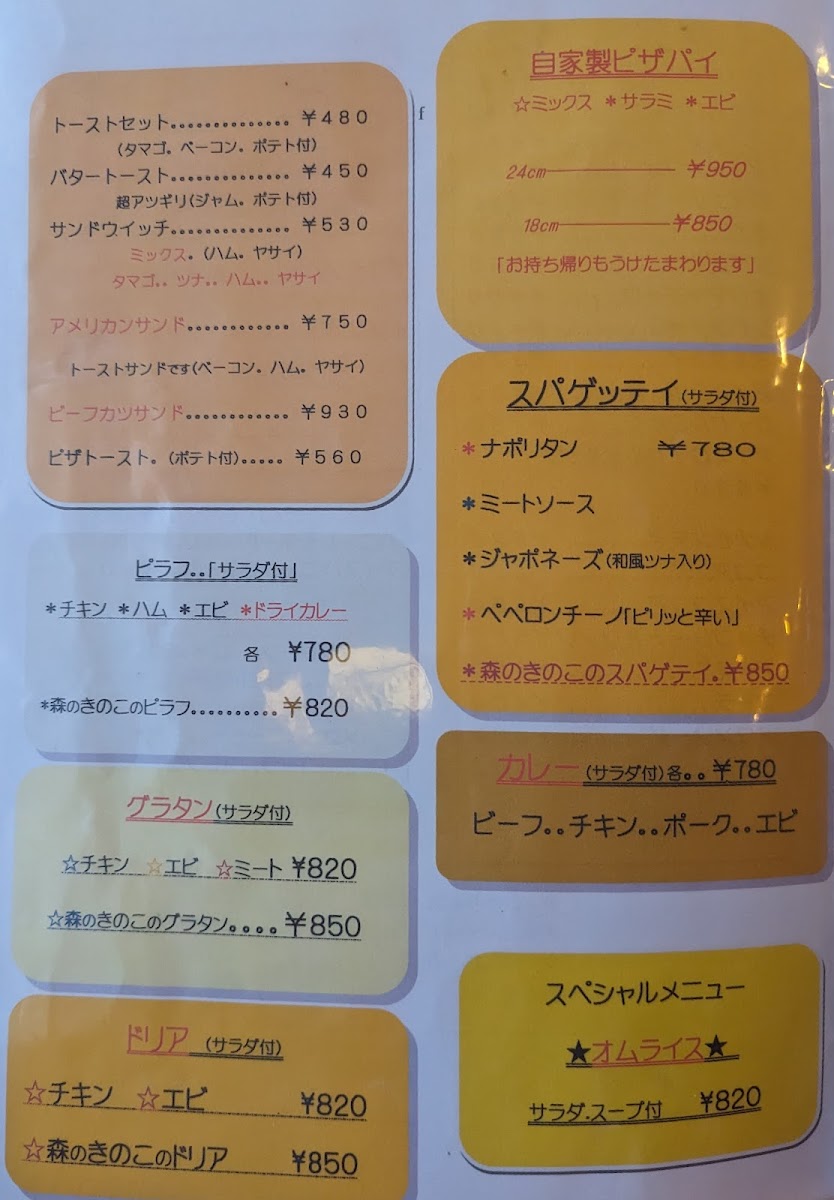 トーストセット。。。。。。。。。。。。。。 ￥４８０
(タマゴ。ベーコン。ポテト付)
バタートースト。。。。。。。。。。。。。。 ￥４５０
超アツギリ(ジャム。ポテト付)
サンドウイッチ。。。。。。。。。。。。。。 ￥５３０
ミックス。(ハム。ヤサイ)
タマゴ。。ツナ。。ハム。。ヤサイ
アメリカンサンド。。。。。。。。。。。。 ￥７５０
トーストサンドです(ベーコン。ハム。ヤサイ)
ビーフカツサンド。。。。。。。。。。。。 ￥９３０
ピザトースト。(ポテト付)。。。。。 ￥５６０
ピラフ。。「サラダ付」
*チキン *ハム *エビ *ドライカレー
各 ¥780
*森のきのこのピラフ。。。。。。。。。。¥820
グラタン(サラダ付)
☆チキン ☆エビ ☆ミート ¥820
☆森のきのこのグラタン。。。。¥850
ドリア (サラダ付)
☆チキン ☆エビ ¥820
☆森のきのこのドリア ¥850
f
自家製ピザパイ
☆ミックス *サラミ *エビ
24cm――――― ¥950
18cm―――――¥850
「お持ち帰りもうけたまわります」
スパゲッテイ(サラダ付)
*ナポリタン ￥７８０
*ミートソース
*ジャポネーズ(和風ツナ入り)
*ペペロンチーノ「ピリッと辛い」
*森のきのこのスパゲテイ。¥850
カレー(サラダ付)各。。¥780
ビーフ。。チキン。。ポーク。。エビ
スペシャルメニュー
★オムライス★
サラダ.スープ付 ¥820